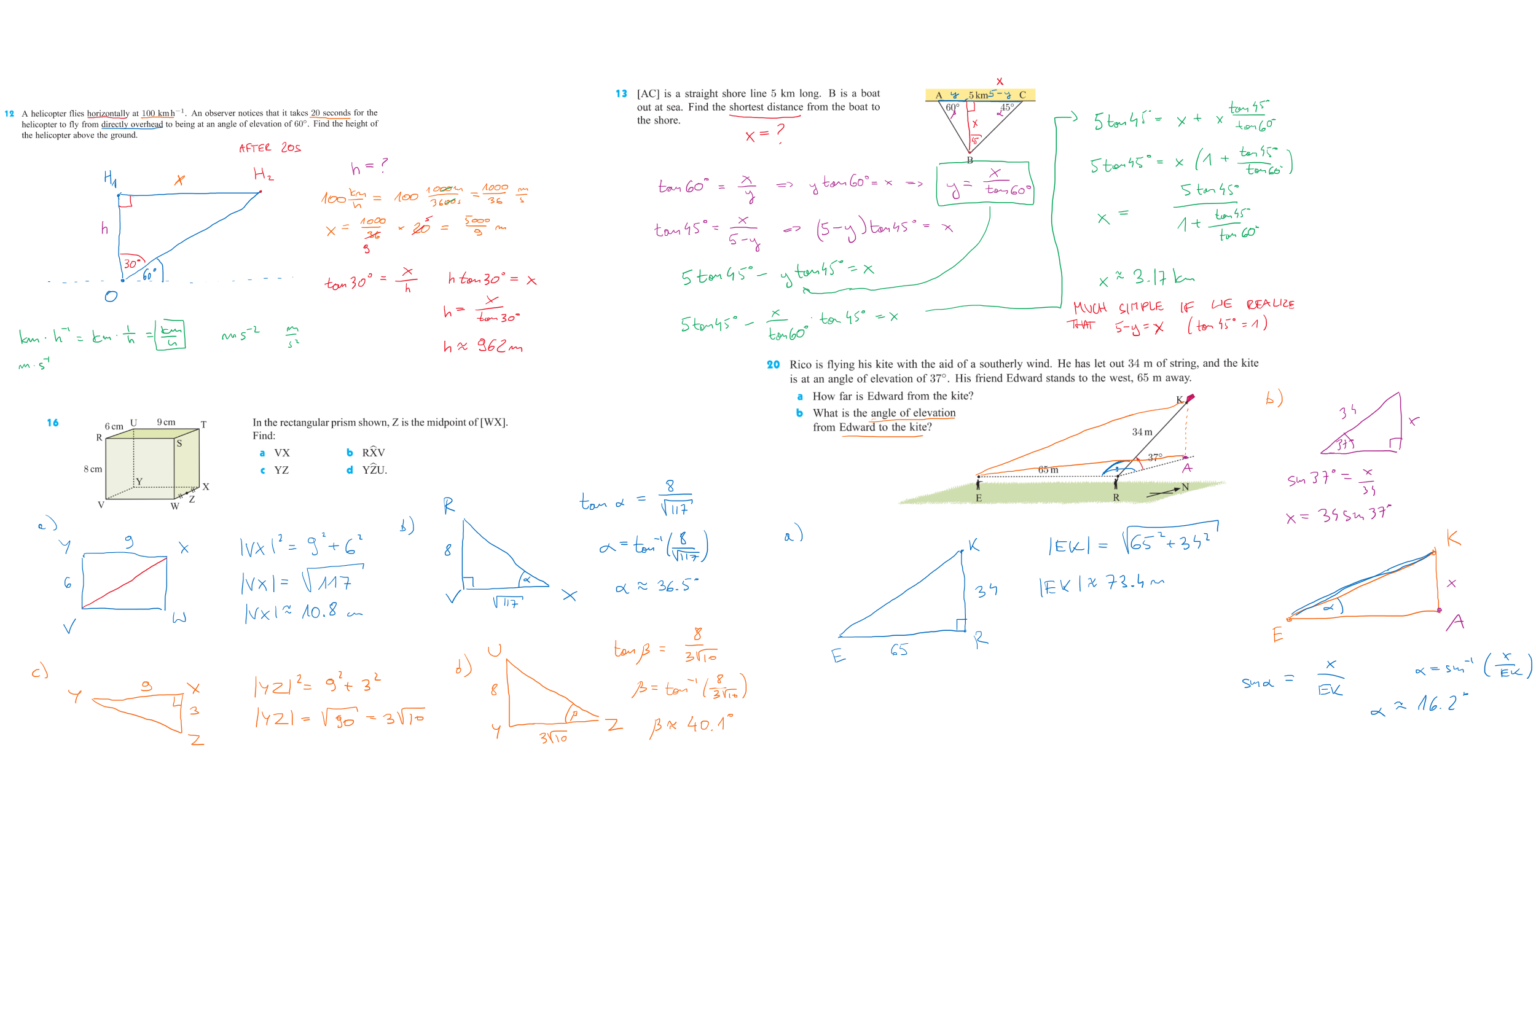 12 A helicopter flies horizontally at 100 km h⁻¹. An observer notices that it takes 20 seconds for the
helicopter to fly from directly overhead to being at an angle of elevation of 60°. Find the height of
the helicopter above the ground.
AFTER 20s
H₁ x H₂
h
30°
60°
O
h = ?
100 km/h = 100 1000m/3600s = 1000/36 m/s
x = 1000/36 · 20 = 5000/9 m
9
5
tan30° = x/h
h tan30° = x
h = x/tan30°
h ≈ 962 m
km·h⁻¹ = km · 1/h = km/h
ms⁻² m/s²
m·s⁻¹
13 [AC] is a straight shore line 5 km long. B is a boat
out at sea. Find the shortest distance from the boat to
the shore.
x = ?
x
A y 5 km 5-y C
60° 45°
x
B
tan60° = x/y => y tan60° = x => y = x/tan60°
tan45° = x/5-y => (5-y)tan45° = x
5tan45° - y tan45° = x
5tan45° - x/tan60° · tan45° = x
5tan45° = x + x tan45°/tan60°
5tan45° = x (1 + tan45°/tan60°)
x = 5tan45°/1 + tan45°/tan60°
x ≈ 3.17 km
MUCH SIMPLE IF WE REALIZE
THAT 5-y = x (tan45° = 1)
16 In the rectangular prism shown, Z is the midpoint of [WX].
Find:
a VX b RX̂V
c YZ d YẐU.
6 cm U 9 cm T
R S
8 cm
Y X
V W Z
a)
Y 9 X
6
V W
|VX|² = 9² + 6²
|VX| = √117
|VX| ≈ 10.8 cm
b)
R
8
V √117 X
α
tan α = 8/√117
α = tan⁻¹(8/√117)
α ≈ 36.5°
c)
Y 9 X
3
Z
|YZ|² = 9² + 3²
|YZ| = √90 = 3√10
d)
U
8
Y 3√10 Z
β
tan β = 8/3√10
β = tan⁻¹(8/3√10)
β ≈ 40.1°
20 Rico is flying his kite with the aid of a southerly wind. He has let out 34 m of string, and the kite
is at an angle of elevation of 37°. His friend Edward stands to the west, 65 m away.
a How far is Edward from the kite?
b What is the angle of elevation
from Edward to the kite?
K
34 m
37°
A
65 m
E R N
a)
K
34
E 65 R
|EK| = √65² + 34²
|EK| ≈ 73.4 m
b)
34
x
37°
sin37° = x/34
x = 34 sin37°
K
x
α
E A
sinα = x/EK
α = sin⁻¹(x/EK)
α ≈ 16.2°